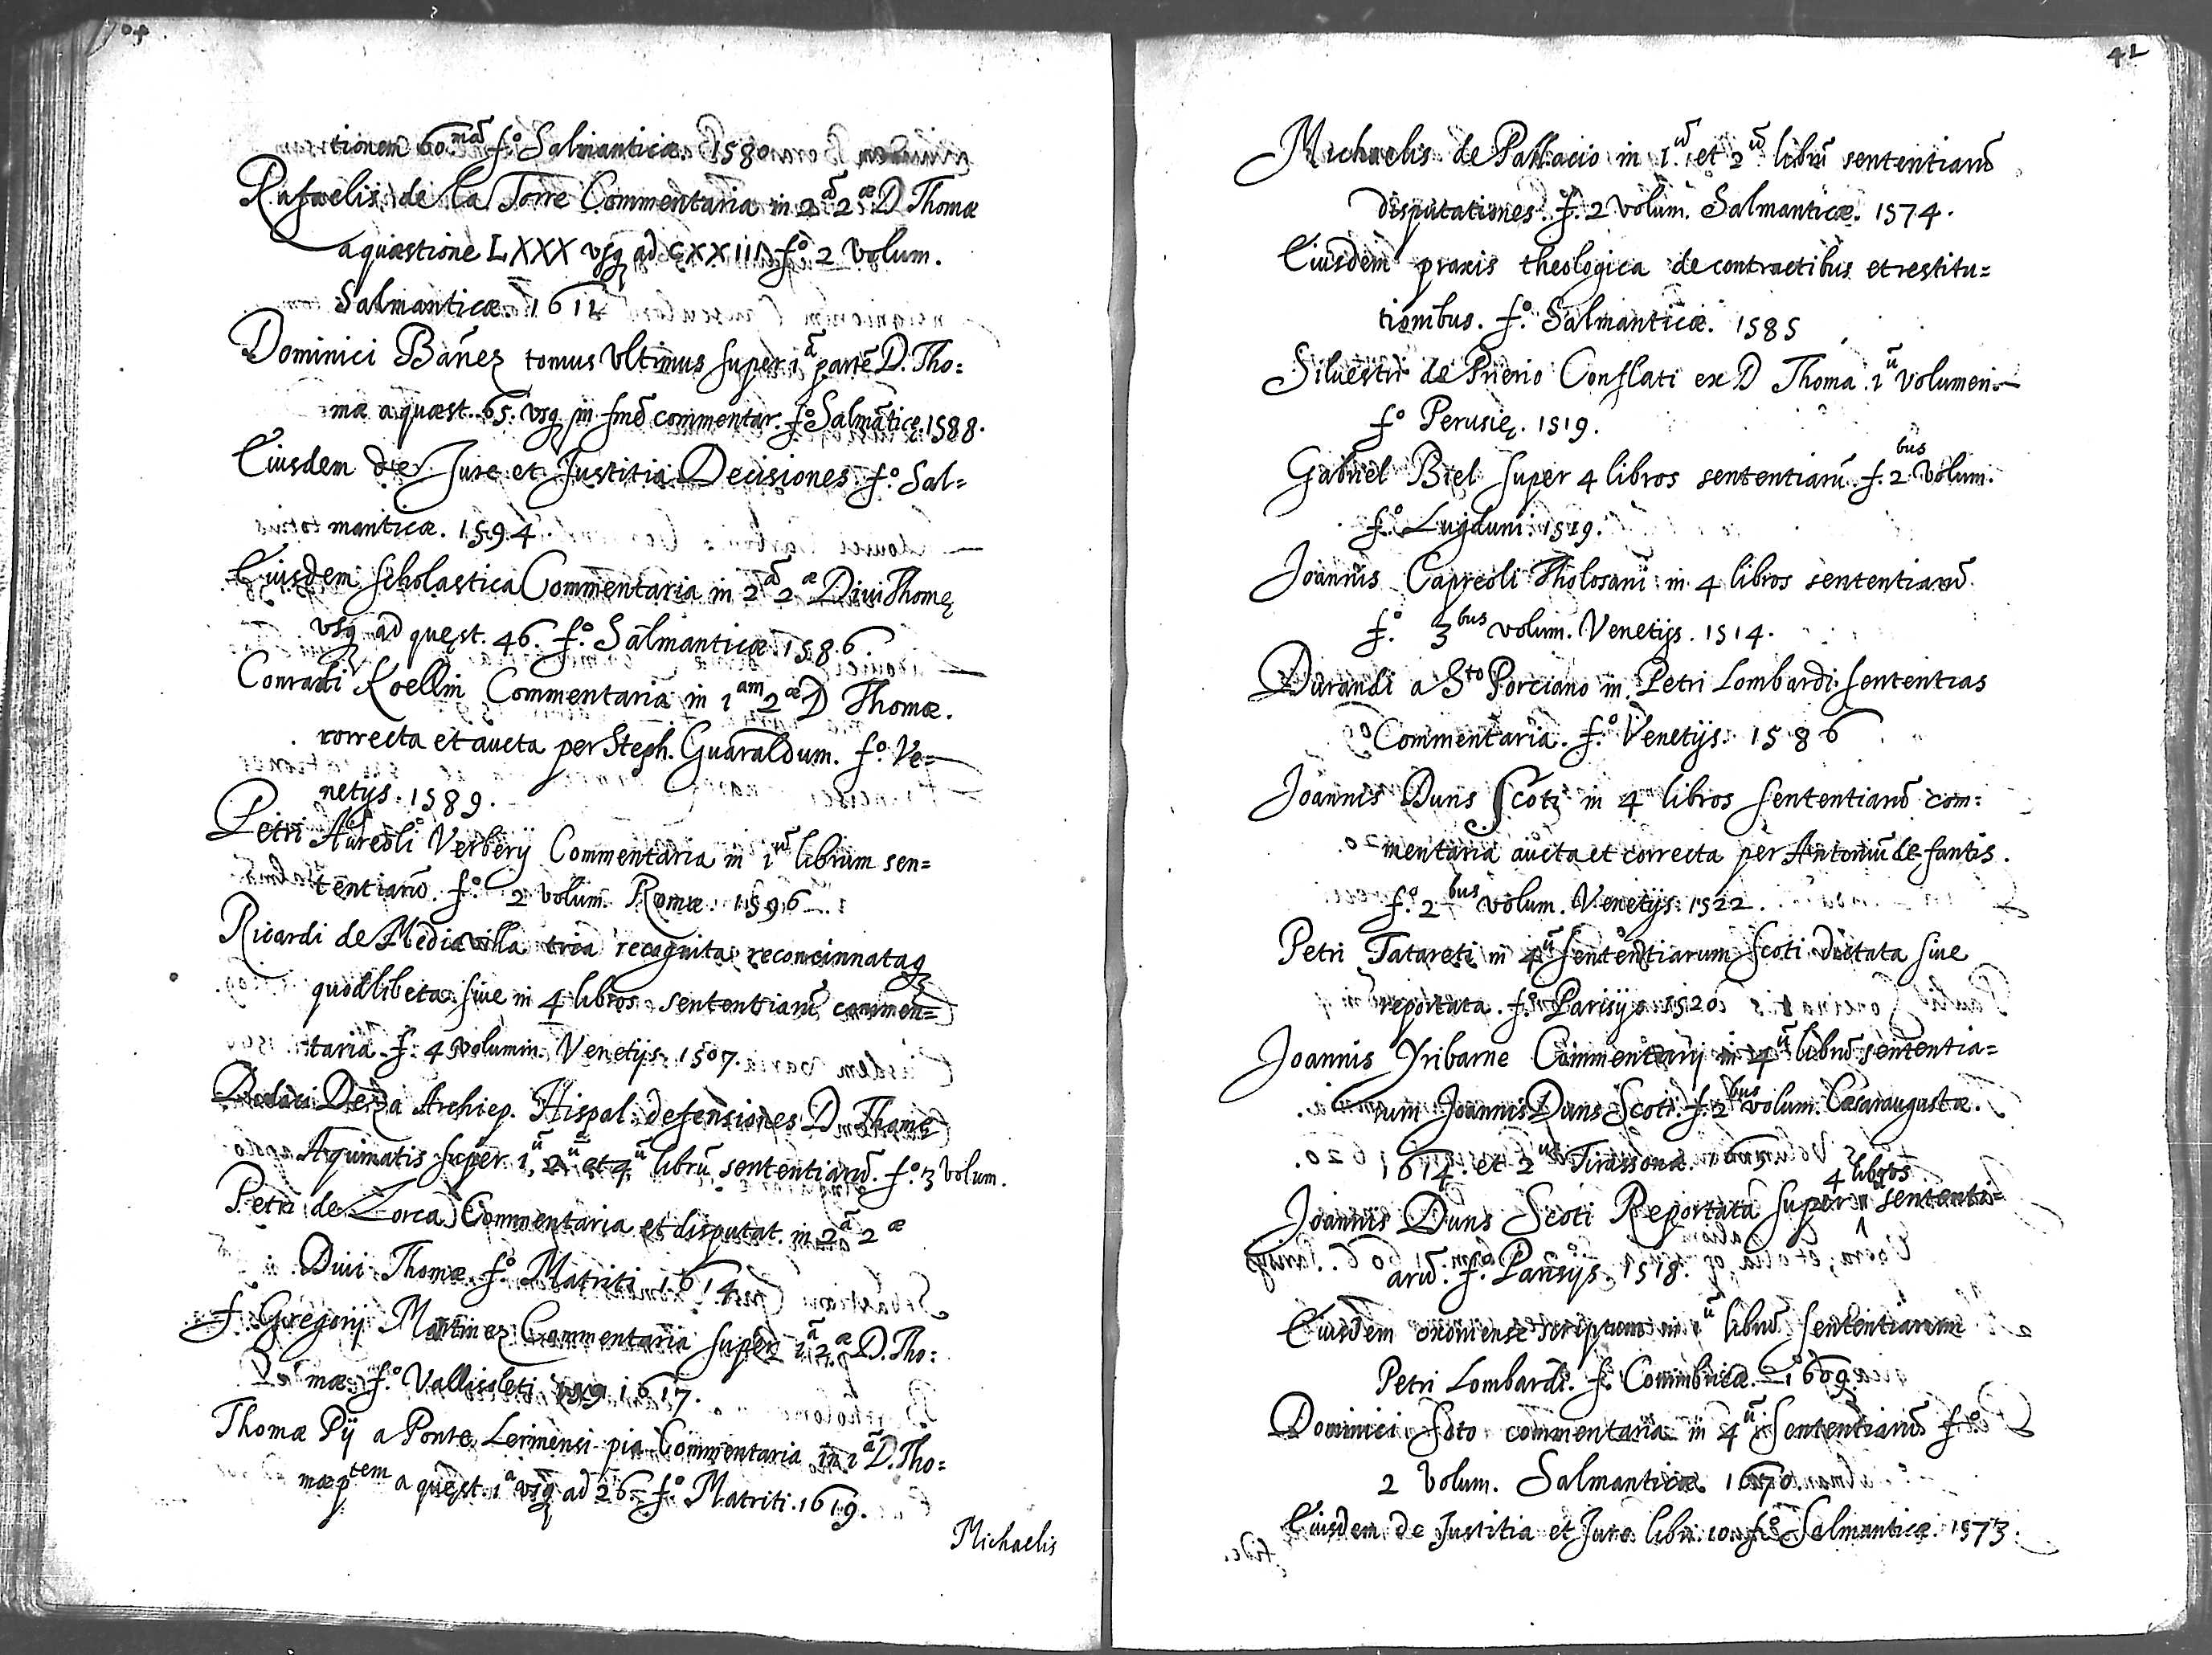 tionem 60.mã f.º Salmanticæ. 1580
Rafaelis de la Torre Commentaria in 2ã 2æ D Thomæ
a quæstione LXXX vsq ad CXXIII f.º 2 volum.
Salmanticæ 1611
Dominici Bañez tomus vltimus super 1ã partẽ D. Tho=
mæ a quæst. 65. vsq in finẽ commentar. f.º Salmãticę. 1588.
Eiusdem de Jure et Justitia Decisiones f.º Sal=
manticæ. 1594
Eiusdem scholastica Commentaria in 2ã 2æ Diui Thomę
vsq ad quęst. 46. f.º Salmanticæ. 1586.
Conradi Koellin Commentaria in 1am 2æ D Thomæ.
correcta et aucta per Steph. Guaraldum. f.º Ve=
netijs. 1589.
Petri Aureoli Verberij Commentaria in 1ũ librum sen=
tentiarũ. f.º 2 volum. Romæ. 1596
Ricardi de Mediauilla tria recognita reconcinnataq
quodlibeta siue in 4 libros sententiarũ commen=
taria. f. 4 volumin. Venetijs. 1507.
Deza Archiep. Hispal. defensiones D. Thomę
Aquinatis super 1ũ, 2ũ et 4ũ librũ sententiarũ. f.º 3 volum.
Petri de Lorca Commentaria et disputat. in 2ã 2æ
Diui Thomæ f.º Matriti 1614
f. Gregorij Martinez Commentaria super 1ã 2æ D. Tho=
mæ. f.º Vallisoleti 1617.
Thomæ Pij a Ponte Lermensi pia Commentaria in 1ã D. Tho=
mæ ptem a quęst. 1ª vsq ad 26 f.º Matriti. 1619.
Michaelis
42
Michaelis de Pallacio in 1ũ et 2ũ librũ sententiarũ
disputationes. f. 2 volum. Salmanticæ. 1574.
Eiusdem praxis theologica de contractibus et restitu=
tionibus. f.º Salmanticæ. 1585
Siluestri de Prierio Conflati ex D Thoma 1ũ volumen
f.º Perusię. 1519.
Gabriel Biel super 4 libros sententiarũ. f. 2bus volum.
f.º Lugduni. 1519.
Joannis Capreoli Tholosani in 4 libros sententiarũ
f.º 3bus volum. Venetijs. 1514.
Durandi a Sto Porciano in Petri Lombardi sententias
Commentaria. f.º Venetijs. 1586
Joannis Duns Scoti in 4 libros sententiarũ com=
mentaria aucta et correcta per Antoniũ de fantis.
f.º 2bus volum. Venetijs. 1522.
Petri Tatareti in 4ũ sententiarum Scoti dictata siue
reportata. f.º Parisijs 1520
Joannis Yribarne Commentarij in 4ũ librũ sententia=
rum Joannis Duns Scoti. f. 2bus volum. Cæsaraugustæ.
1614. et 2us Tirassonæ.
Joannis Duns Scoti Reportata super 4 libros sententi=
arũ. f.º Parisijs 1518.
Eiusdem oxoniense scriptum in 1ũ librũ sententiarum
Petri Lombardi. f.º Conimbricæ. 1609.
Dominici Soto commentaria in 4ũ sententiarũ f.º
2 volum. Salmanticæ.
Eiusdem de Justitia et Jure libri 10. f.º Salmanticæ. 1573.